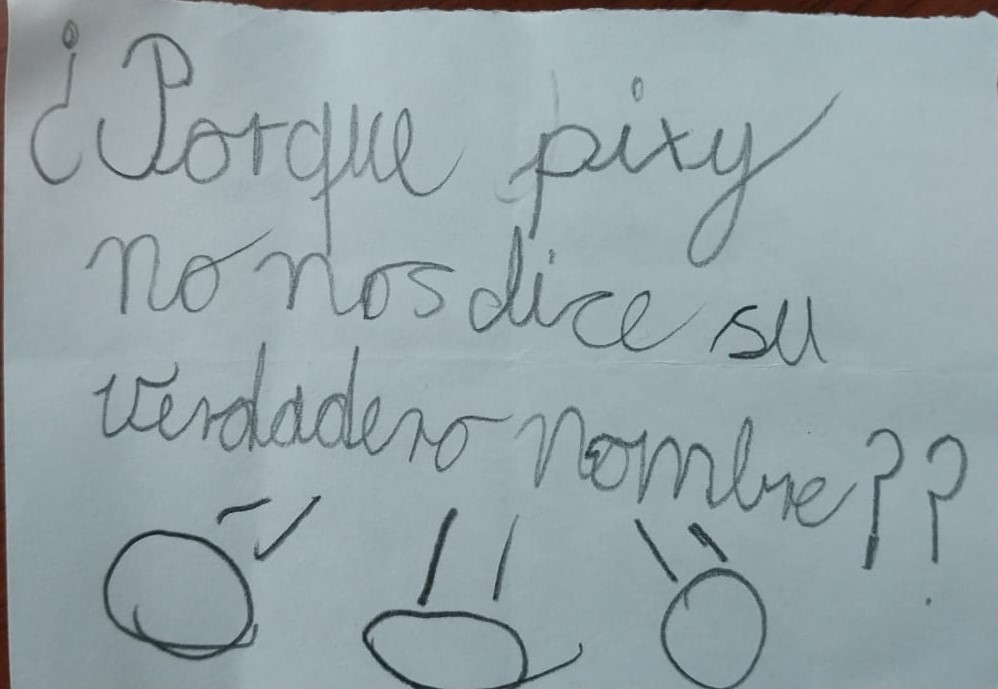 ¿Porque pixy
no nos dice su
verdadero nombre??